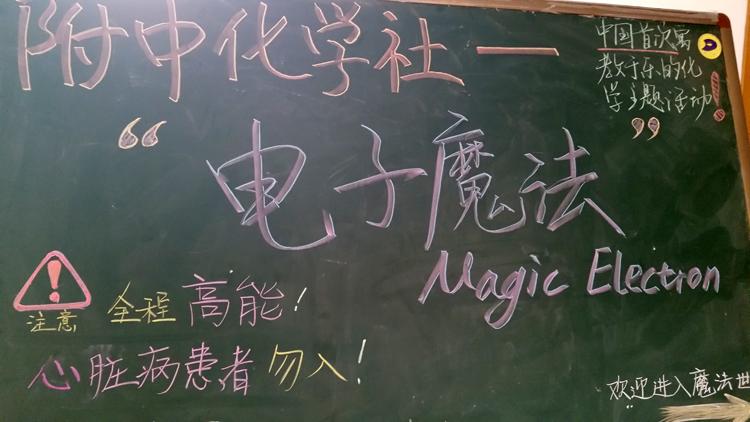 附中化学社—
中国首次寓
教于乐的化
学主题活动!
“电子魔法”
Magic Electron
注意 全程高能!
心脏病患者勿入!
欢迎进入魔法世